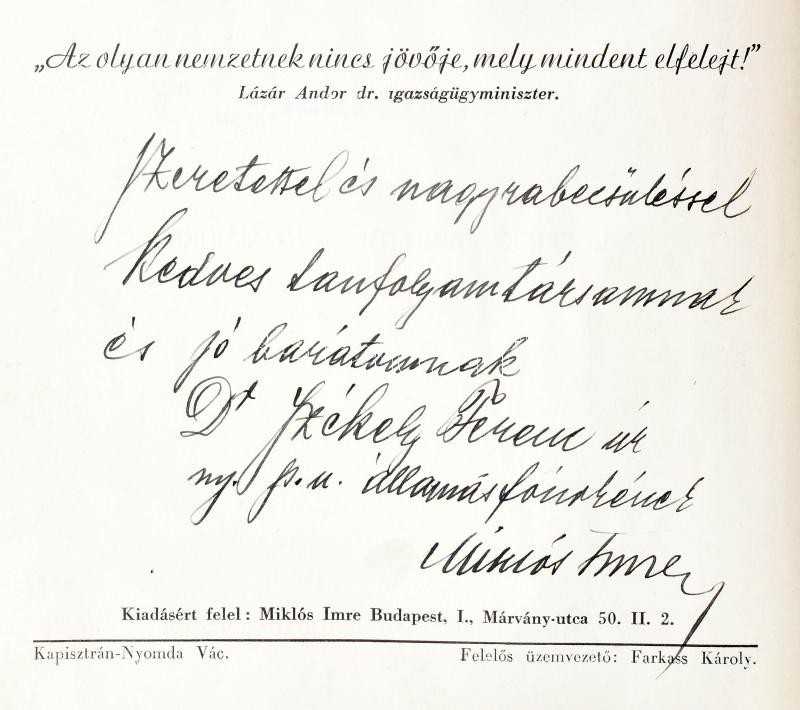 „Az olyan nemzetnek nincs jövője, mely mindent elfelejt!”
Lázár Andor dr. igazságügyminiszter.
Szeretettel és nagyrabecsüléssel
kedves tanfolyamtársamnak
és jó barátomnak
Dr Székely Ferenc úr
ny. p.u. főnökének
Miklós Imre
Kiadásért felel: Miklós Imre Budapest, I., Márvány-utca 50. II. 2.
Kapisztrán-Nyomda Vác.
Felelős üzemvezető: Farkass Károly.